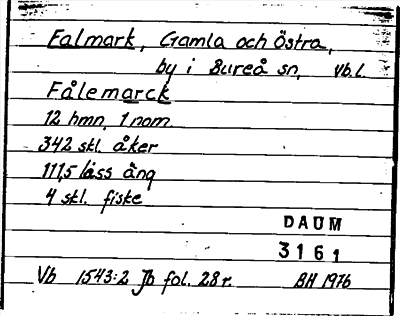 Falmark, Gamla och Östra,
by i Bureå sn, Vb.l.
Fålemarck
12 hmn, 1 nom.
342 skl. åker
111,5 lass äng
4 skl. fiske
DAUM
3161
Vb 1543:2 Jb fol. 28r. BH 1976